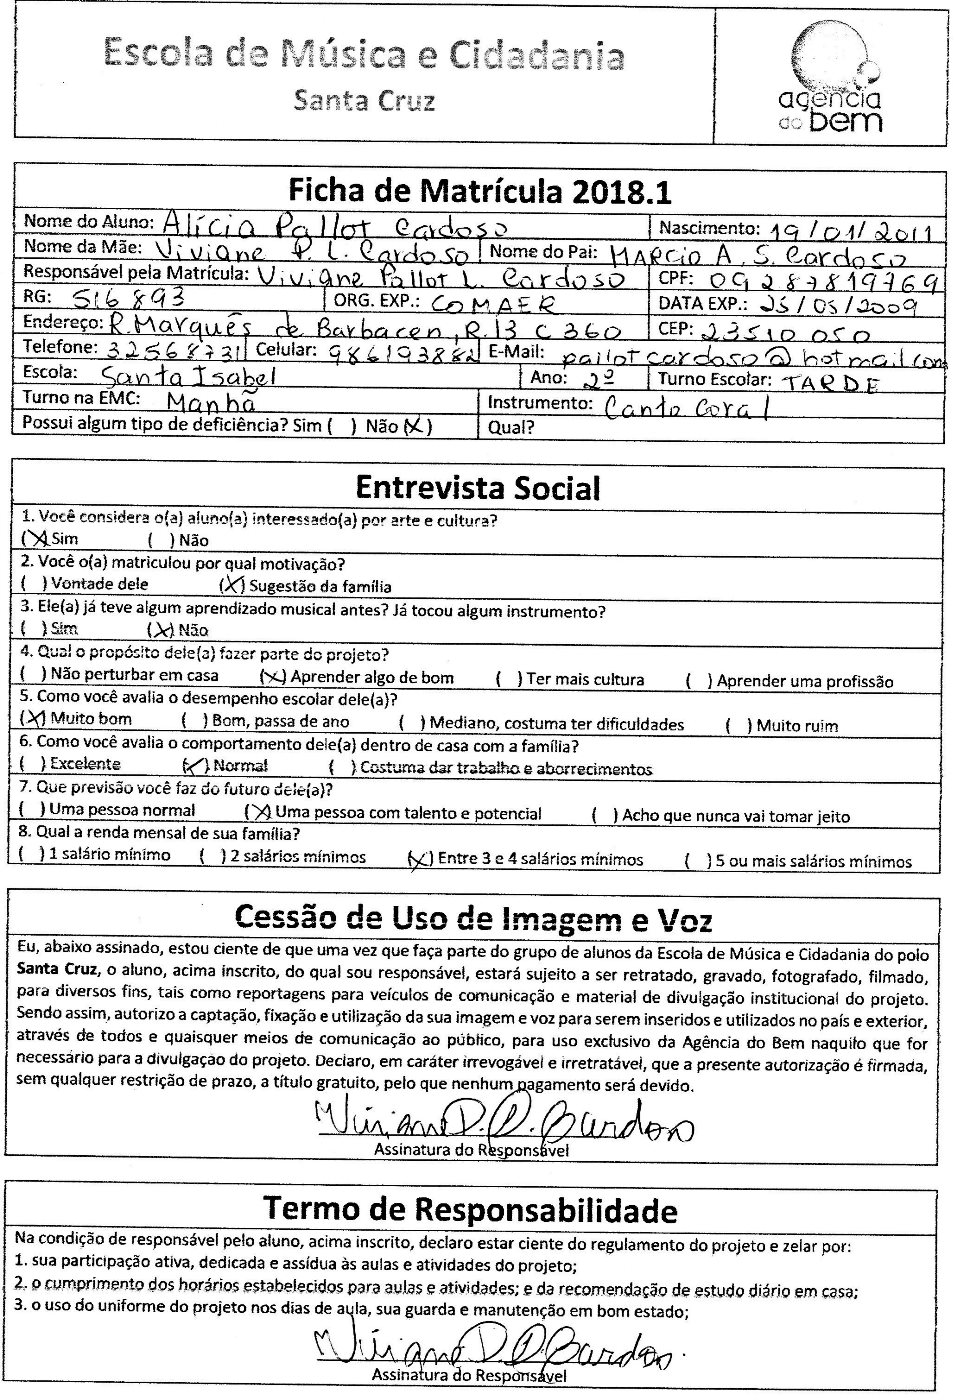 Escola de Música e Cidadania
Santa Cruz
agência
do bem
Ficha de Matrícula 2018.1
Nome do Aluno: Alícia Pallot Cardoso Nascimento: 19/01/2011
Nome da Mãe: Viviane P. L. Cardoso Nome do Pai: MARCIO A. S. Cardoso
Responsável pela Matrícula: Viviane Pallot L. Cardoso CPF: 09287819769
RG: 516893 ORG. EXP.: COMAER DATA EXP.: 25/05/2009
Endereço: R. Marquês de Barbacen, R. 13 C 360 CEP: 23510050
Telefone: 32568731 Celular: 986193882 E-Mail: pallotcardoso@hotmail.com
Escola: Santa Isabel Ano: 2º Turno Escolar: TARDE
Turno na EMC: Manhã Instrumento: Canto Coral
Possui algum tipo de deficiência? Sim ( ) Não (X) Qual?
Entrevista Social
1. Você considera o(a) aluno(a) interessado(a) por arte e cultura?
(X) Sim ( ) Não
2. Você o(a) matriculou por qual motivação?
( ) Vontade dele (X) Sugestão da família
3. Ele(a) já teve algum aprendizado musical antes? Já tocou algum instrumento?
( ) Sim (X) Não
4. Qual o propósito dele(a) fazer parte do projeto?
( ) Não perturbar em casa (X) Aprender algo de bom ( ) Ter mais cultura ( ) Aprender uma profissão
5. Como você avalia o desempenho escolar dele(a)?
(X) Muito bom ( ) Bom, passa de ano ( ) Mediano, costuma ter dificuldades ( ) Muito ruim
6. Como você avalia o comportamento dele(a) dentro de casa com a família?
( ) Excelente (X) Normal ( ) Costuma dar trabalho e aborrecimentos
7. Que previsão você faz do futuro dele(a)?
( ) Uma pessoa normal (X) Uma pessoa com talento e potencial ( ) Acho que nunca vai tomar jeito
8. Qual a renda mensal de sua família?
( ) 1 salário mínimo ( ) 2 salários mínimos (X) Entre 3 e 4 salários mínimos ( ) 5 ou mais salários mínimos
Cessão de Uso de Imagem e Voz
Eu, abaixo assinado, estou ciente de que uma vez que faça parte do grupo de alunos da Escola de Música e Cidadania do polo
Santa Cruz, o aluno, acima inscrito, do qual sou responsável, estará sujeito a ser retratado, gravado, fotografado, filmado,
para diversos fins, tais como reportagens para veículos de comunicação e material de divulgação institucional do projeto.
Sendo assim, autorizo a captação, fixação e utilização da sua imagem e voz para serem inseridos e utilizados no país e exterior,
através de todos e quaisquer meios de comunicação ao público, para uso exclusivo da Agência do Bem naquilo que for
necessário para a divulgação do projeto. Declaro, em caráter irrevogável e irretratável, que a presente autorização é firmada,
sem qualquer restrição de prazo, a título gratuito, pelo que nenhum pagamento será devido.
Assinatura do Responsável
Termo de Responsabilidade
Na condição de responsável pelo aluno, acima inscrito, declaro estar ciente do regulamento do projeto e zelar por:
1. sua participação ativa, dedicada e assídua às aulas e atividades do projeto;
2. o cumprimento dos horários estabelecidos para aulas e atividades; e da recomendação de estudo diário em casa;
3. o uso do uniforme do projeto nos dias de aula, sua guarda e manutenção em bom estado;
Assinatura do Responsável